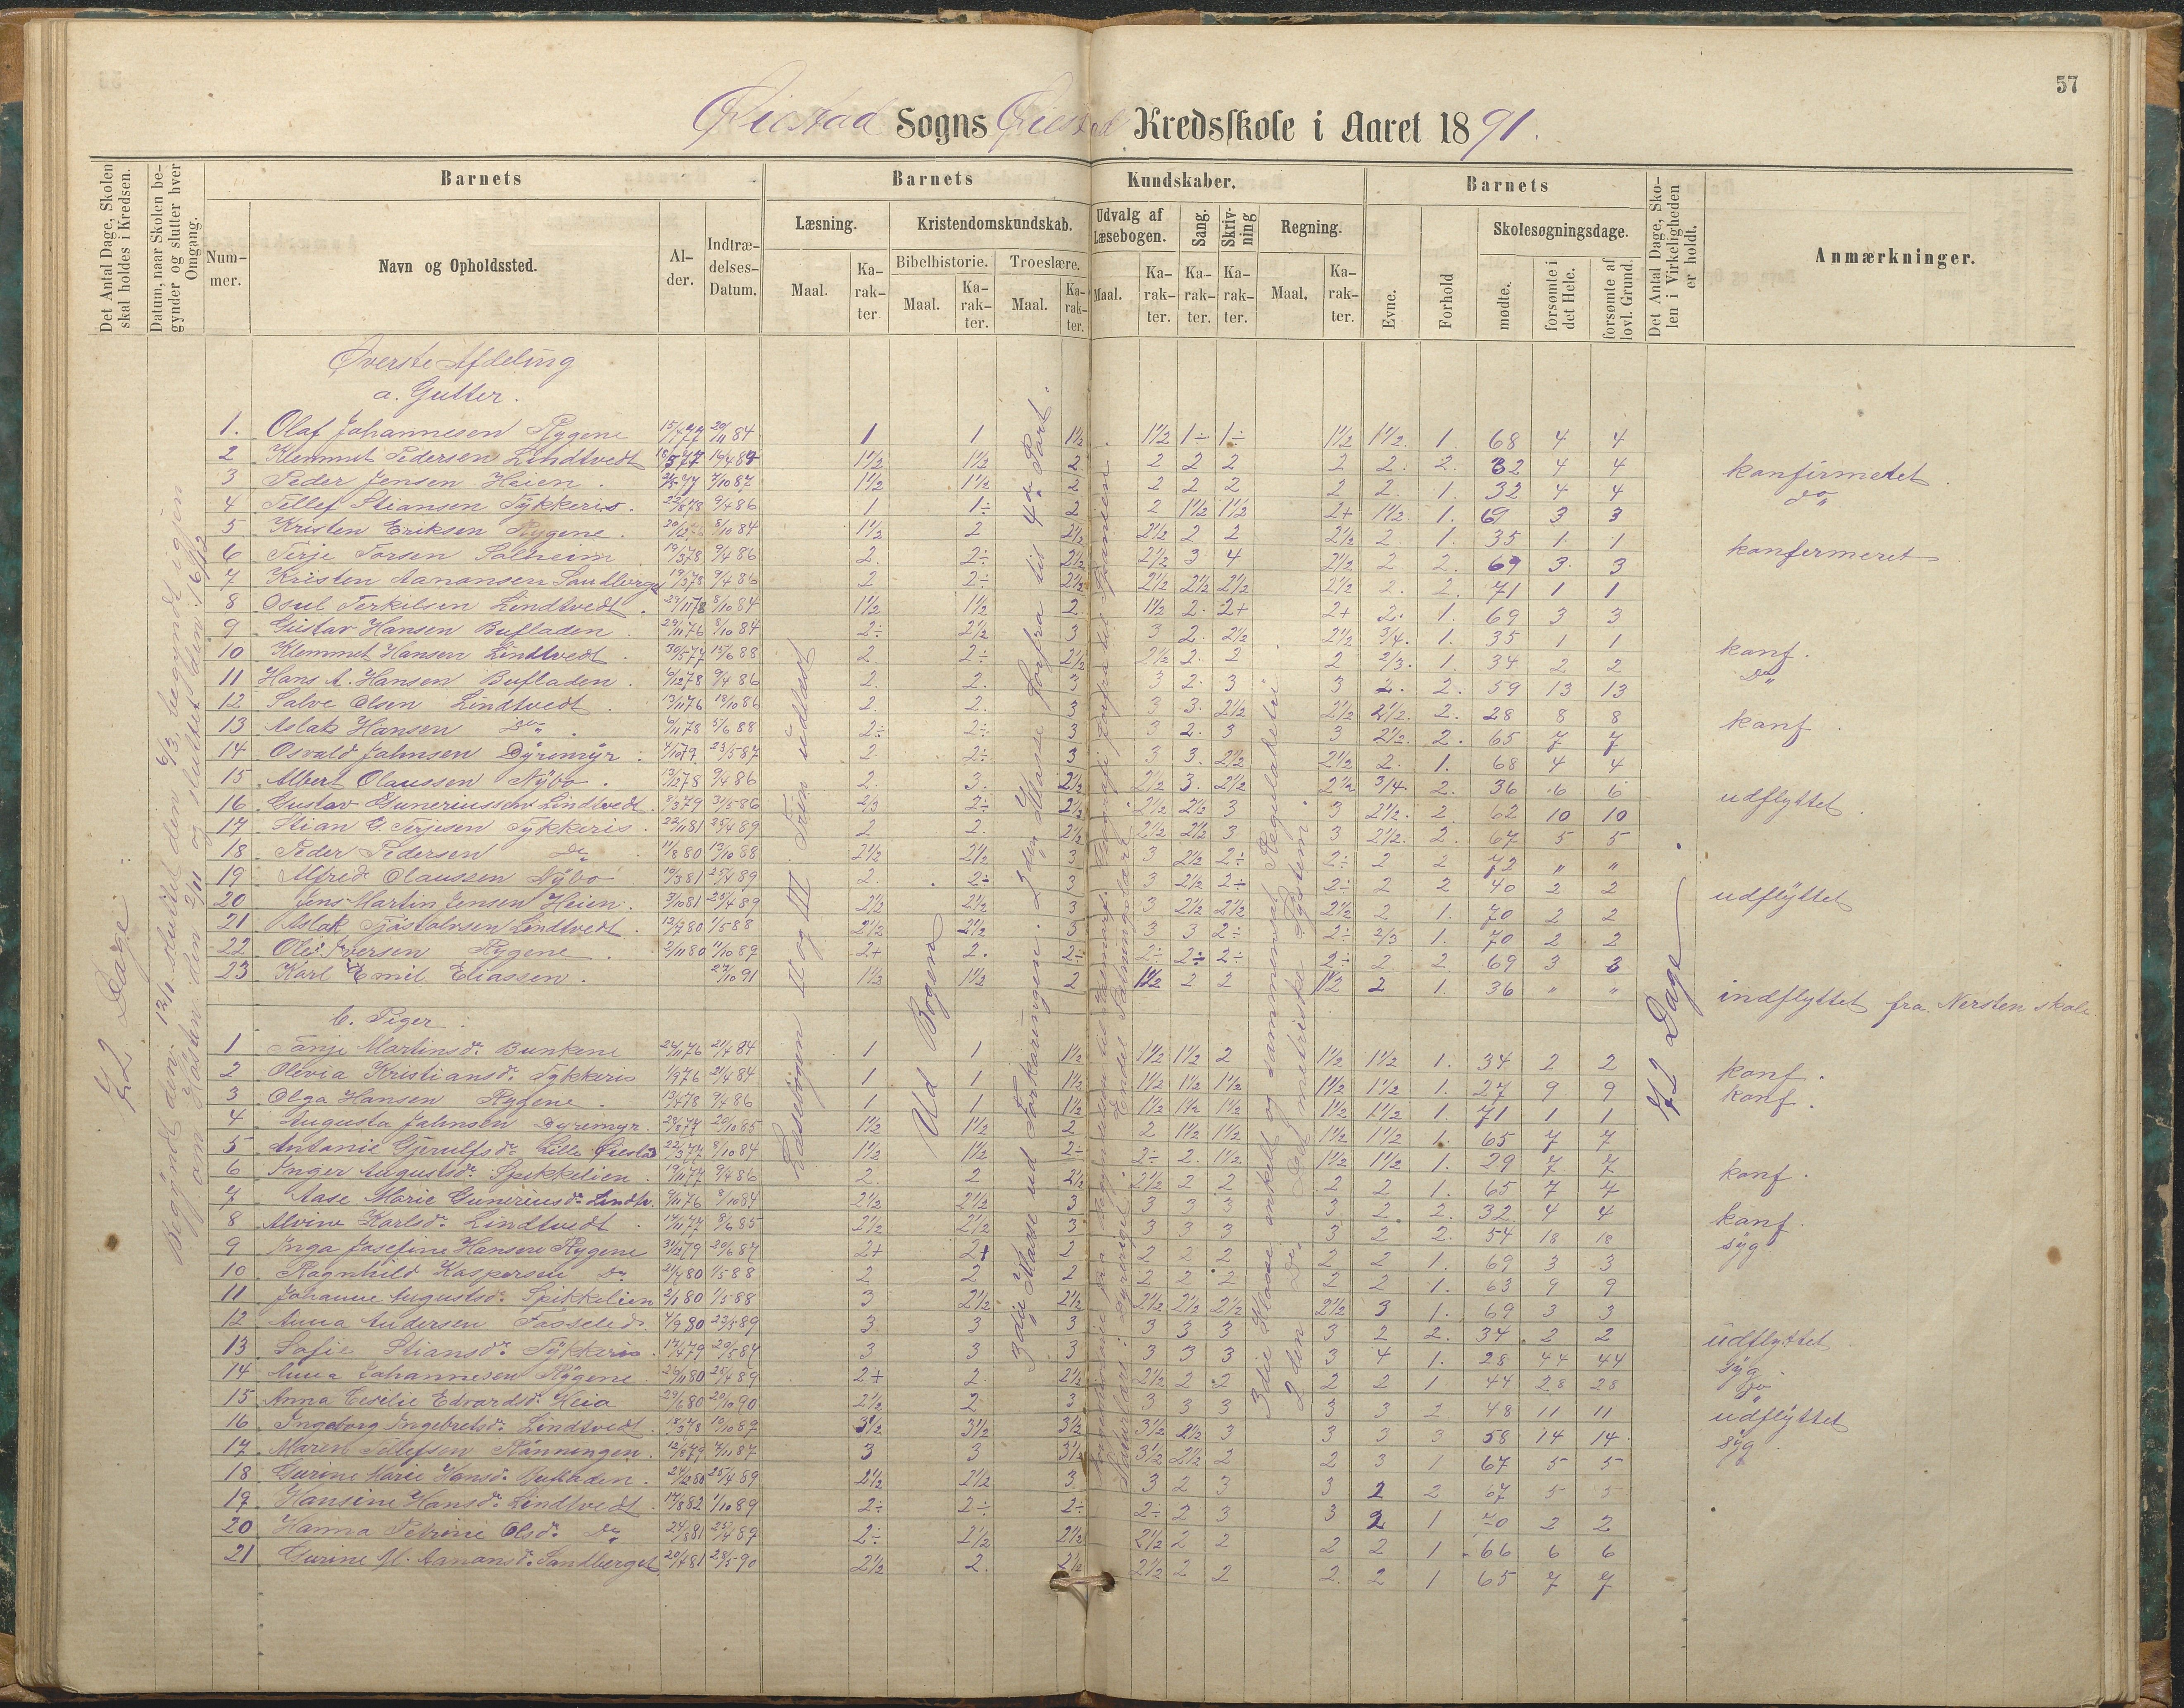 57
Øiestad Sogns Øiestad Kredsskole i Aaret 1891.
Det Antal Dage, Skolen skal holdes i Kredsen.
Datum, naar Skolen begynder og slutter hver Omgang.
Barnets
Nummer.
Navn og Opholdssted.
Alder.
Indtrædelses-Datum.
Barnets Kundskaber.
Læsning.
Maal.
Karakter
Kristendomskundskab.
Bibelhistorie.
Maal.
Karakter.
Troeslære.
Maal.
Karakter.
Udvalg af Læsebogen.
Maal.
Karakter.
Sang.
Karakter.
Skrivning
Karakter.
Regning.
Maal.
Karakter.
Barnets
Evne.
Forhold
Skolesøgningsdage.
mødte.
forsømte i det Hele.
forsømte af lovl. Grund.
Det Antal Dage, Skolen i Virkeligheden er holdt.
Anmærkninger.
72 Dage.
72 Dage
Øverste Afdeling
a. Gutter.
1. Olaf Johannesen Rygene 20/11 84 1 1 1½ 1½ 1÷ 1÷ 1½ 1½. 1. 68 4 4
2 Klemmet Pedersen Lindtvedt 1½ 1½ 2 2 2 2 2 2. 2. 32 4 4 konfirmeret
3 Peder Jensen Heien. 7/10 87 1½ 1½ 2 2 2 2 2 2. 1. 32 4 4 do
4 Tellef Stiansen Tykkeris. 22/8 78 9/4 86 1 1÷ 2 2 1½ 1½ 2+ 1½. 1. 69 3 3
5 Kristen Eriksen Rygene. 8/10 84 1½ 2 2½ 2½ 2 2 2½ 2. 1. 35 1 1 konfermeret
6 Terje Torsen Solheim 19/3 78 9/4 86 2. 2÷ 2½ 2½ 3 4 2½ 2 2. 69 3 3
7 Kristen Aanonsen Sandberget 9/4 86 2 2÷ 2½ 2½ 2½ 2½ 2½ 2. 2. 71 1 1
8 Osul Terkilsen Lindtvedt. 8/10 84 1½ 1½ 2 1½ 2. 2+ 2+ 2. 1. 69 3 3
9 Gustav Hansen Bufladen. 29/11 76 8/10 84 2÷ 2½ 3 3 2. 2½ 2½ 3/4. 1. 35 1 1 konf.
10 Klemmet Hansen Lindtvedt. 30/5 77 15/6 88 2 2÷ 2½ 2½ 2. 2 2 2/3. 1. 34 2 2 Do
11 Hans A. Hansen Bufladen. 9/12 78 9/4 86 2. 2. 3 3 2. 3 3 2. 2. 59 13 13
12 Salve Olsen Lindtvedt. 13/11 76 18/10 86 2. 2. 3 3 3. 2½ 2½ 2½. 2. 28 8 8 konf.
13 Aslak Hansen Do. 6/11 78 5/6 88 2÷ 2÷ 3 3 2. 3 3 2½. 2. 65 7 7
14 Osvald Johnsen Dyremyr. 4/10 79 23/5 87 2. 2÷ 3 3 3. 2½ 2½ 2. 1. 68 4 4
15 Albert Olaussen Nybo. 13/12 78 9/4 86 2. 3. 2½ 2½ 3. 2½ 2½ 3/4. 2. 36 6 6 udflyttet.
16 Gustav Guneriussen Lindtvedt 31/5 86 2/3 2÷ 2½ 2½ 2½ 3 3 2½. 2. 62 10 10
17 Stian G. Terjesen Tykkeris. 22/11 81 25/4 89 2 2. 2½ 2½ 2½ 3 3 2½. 2. 67 5 5
18 Peder Pedersen Do 11/8 80 13/10 88 2½ 2½ 3 3 2½ 2÷ 2÷ 2 2 72 " "
19 Alfred Olaussen Nybo 10/3 81 25/4 89 2. 2÷ 3 3 2½ 2÷ 2÷ 2 2 40 2 2 udflyttet
20 Jens Martin Jensen Heien. 3/10 81 25/4 89 2½ 2½ 3 3 2½ 2½ 2½ 2 1. 70 2 2
21 Aslak Tjostolvsen Lindtvedt. 1/5 88 2½ 2½ 3 3 3 2÷ 2÷ 2/3 1. 70 2 2
22 Ole Iversen Rygene. 2/11 80 11/10 87 2+ 2. 2÷ 2÷ 2÷ 2÷ 2÷ 2 2 69 3 3
23 Karl Emil Eliassen. 27/10 91 1½ 1½ 2 1½ 2 2 1½ 2 1. 36 " " indflyttet fra Nersten skole
b. Piger.
1 Tonje Martinsdr. Bunkene 24/11 76 21/4 84 1 1 1½ 1½ 1½ 2 1½ 1½ 1. 34 2 2 konf.
2 Olevia Kristiansdr. Tykkeris 21/4 84 1 1 1½ 1½ 1½ 1½ 1½ 1½ 1. 27 9 9 konf.
3 Olga Hansen Rygene. 9/4 86 1 1 1½ 1½ 1½ 1½ 1½ 1½ 1. 71 1 1
4 Augusta Johnsen Dyremyr. 20/10 85 1½ 1½ 2 2 1½ 1½ 1½ 1½ 1. 65 7 7
5 Antonie Gjerulfsdr. Lille Øiestad 8/10 84 1½ 1½ 2÷ 2÷ 2. 1½ 1½ 1½ 1. 29 7 7 konf.
6 Inger Augustsdr. Spikkelien. 19/11 77 9/4 86 2. 2 2½ 2½ 2 2 2 2 1. 65 7 7
7 Aase Marie Guneriusdr. Lindtv. 8/10 84 2½ 2½ 3 3 3 3 3 2 2. 32 4 4 konf.
8 Alvine Karlsdr. Lindtvedt. 8/6 85 2½ 2½ 3 3 3 3 3 2 2. 54 18 18 syg
9 Inga Josefine Hansen Rygene 31/12 79 20/6 87 2+ 2+ 2 2 2 2 2 2 1. 69 3 3
10 Ragnhild Kaspersen Do 1/5 88 2 2 2 2 2 2 2 2 1. 63 9 9
11 Johanne Augustsdr. Spikkelien 2/1 80 1/5 88 3 2½ 2½ 2½ 2½ 2½ 2½ 3 1. 69 3 3
12 Anna Andersen 4/9 80 23/5 89 3 3 3 3 3 3 3 2 2. 34 2 2 udflyttet
13 Sofie Stiansdr. Tykkeris. 3 3 3 3 3 3 3 4 1. 28 44 44 Syg.
14 Anna Johannesen Rygene. 26/11 80 25/4 89 2+ 2. 2½ 2½ 2 2 2 2 1 44 28 28 Do
15 Anna Cecilie Edvardsdr. Heia 20/10 90 2½ 2 3 3 3 3 3 3 2 48 11 11 udflyttet
16 Ingeborg Ingebretsdr. Lindtvedt. 10/10 87 3½ 3½ 3½ 3½ 2½ 3 3 3 3 58 14 14 Syg.
17 Maren Tellefsen Rønningen. 7/11 87 3 3 3½ 3½ 2½ 2 2 3 1 67 5 5
18 Gurine Marie Hansdr. Bufladen. 25/4 89 2½ 2½ 3 3 2 3 3 2 2 67 5 5
19 Hansine Hansdr. Lindtvedt. 1/10 89 2÷ 2÷ 2÷ 2÷ 2 3 3 2 1 70 2 2
20 Hanna Petrine Olsdr. Do 2÷ 2½ 2½ 2½ 2 2 2 2 1 66 6 6
21 Gurine M. Aanonsdr. Sandberget 28/5 90 2½ 2. 2½ 2½ 2 2 2. 2 1 65 7 7
Begyndt den 12/1, sluttet den 6/3, begyndt igjen
om Høsten den 2/11 og sluttet den 16/12
Læsebogen II og III Trin udlæst
Ud Bogen
3die Klasse ud Forklaringen. 2den Klasse forfra til 4de Part.
3die Klasse enkelt og sammensat Reguladetri.
2den Do Det metriske System.